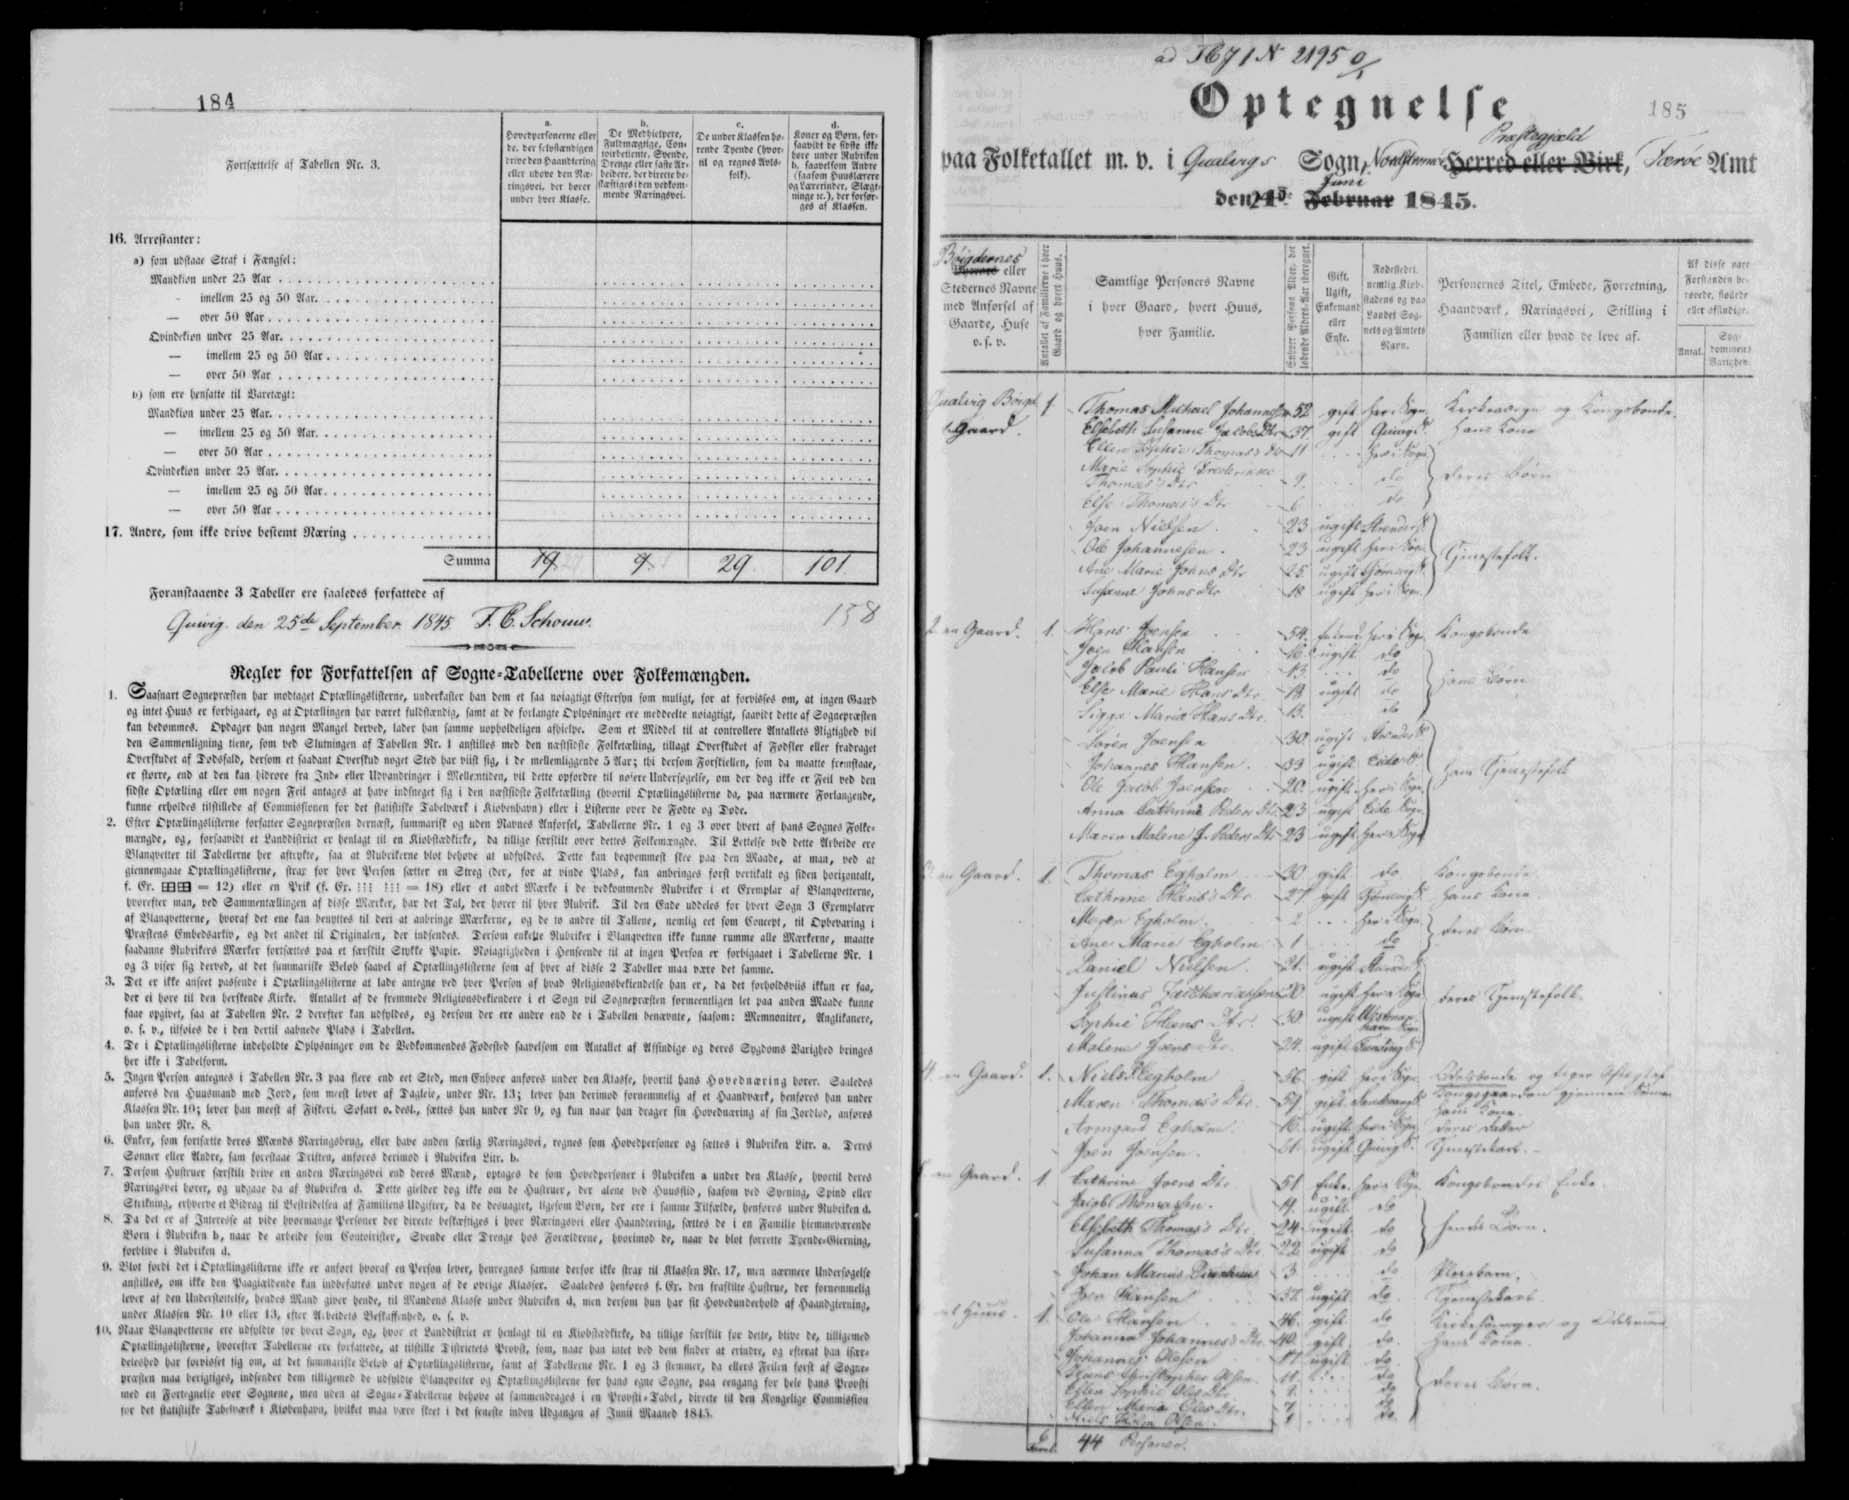 184
Fortsættelse af Tabellen Nr. 3.
a.
Hovedpersonerne eller
de, der selvstændigen
drive den Haandtering
eller udøve den Næ-
ringsvei, der hører
under hver Klasse.
b.
De Medhielpere,
Fuldmægtige, Con-
toirbetiente, Svende,
Drenge eller faste Ar-
beidere, der directe be-
skæftiges i den vedkom-
mende Næringsvei.
c.
De under Klassen hø-
rende Tyende (hvor-
til og regnes Avls-
folk).
d.
Koner og Børn, for-
saavidt de sidste ikke
høre under Rubriken
b, saavelsom Andre
(saasom Huuslærere
og Lærerinder, Slægt-
ninge ic.), der forsør-
ges af Klassen.
16. Arrestanter:
a) som udstaae Straf i Fængsel:
Mandkiøn under 25 Aar
- imellem 25 og 50 Aar.
— over 50 Aar
Qvindekiøn under 25 Aar.
— imellem 25 og 50 Aar
— over 50 Aar
b) som ere hensatte til Varetægt:
Mandkiøn under 25 Aar.
— imellem 25 og 50 Aar.
— over 50 Aar
Qvindekiøn under 25 Aar.
— imellem 25 og 50 Aar.
— over 50 Aar
17. Andre, som ikke drive bestemt Næring
Summa 29 101
Foranstaaende 3 Tabeller ere saaledes forfattede af
Quivig den 25de September 1845. F. C. Schouw.
158
Regler for Forfattelsen af Sogne-Tabellerne over Folkemængden.
1. Saasnart Sognepræsten har modtaget Optællingslisterne, underkaster han dem et saa nøiagtigt Eftersyn som muligt, for at forvisses om, at ingen Gaard
og intet Huus er forbigaaet, og at Optællingen har været fuldstændig, samt at de forlangte Oplysninger ere meddeelte nøiagtigt, saavidt dette af Sognepræsten
kan bedømmes. Opdager han nogen Mangel derved, lader han samme uopholdeligen afhielpe. Som et Middel til at controllere Antallets Rigtighed vil
den Sammenligning tiene, som ved Slutningen af Tabellen Nr. 1 anstilles med den næstsidste Folketælling, tillagt Overskudet af Fødsler eller fradraget
Overskudet af Dødsfald, dersom et saadant Overskud noget Sted har viist sig, i de mellemliggende 5 Aar; thi dersom Forskiellen, som da maatte fremstaae,
er større, end at den kan hidrøre fra Ind- eller Udvandringer i Mellemtiden, vil dette opfordre til nøiere Undersøgelse, om der dog ikke er Feil ved den
sidste Optælling eller om nogen Feil antages at have indsneget sig i den næstsidste Folketælling (hvortil Optællingslisterne da, paa nærmere Forlangende,
kunne erholdes tilstillede af Commissionen for det statistiske Tabelværk i Kiøbenhavn) eller i Listerne over de Fødte og Døde.
2. Efter Optællingslisterne forfatter Sognepræsten dernæst, summarisk og uden Navnes Anførsel, Tabellerne Nr. 1 og 3 over hvert af hans Sognes Folke-
mængde, og, forsaavidt et Landdistrict er henlagt til en Kiøbstadkirke, da tillige særskilt over dettes Folkemængde. Til Lettelse ved dette Arbeide ere
Blanqvetter til Tabellerne her aftrykte, saa at Rubrikerne blot behøve at udfyldes. Dette kan beqvemmest skee paa den Maade, at man, ved at
giennemgaae Optællingslisterne, strax for hver Person sætter en Streg (der, for at vinde Plads, kan anbringes først vertikalt og siden horizontalt,
f. Ex. = 12) eller en Prik (f. Ex. = 18) eller et andet Mærke i de vedkommende Rubriker i et Exemplar af Blanqvetterne,
hvorefter man, ved Sammentællingen af disse Mærker, har det Tal, der hører til hver Rubrik. Til den Ende uddeles for hvert Sogn 3 Exemplarer
af Blanqvetterne, hvoraf det ene kan benyttes til deri at anbringe Mærkerne, og de to andre til Tallene, nemlig eet som Concept, til Opbevaring i
Præstens Embedsarkiv, og det andet til Originalen, der indsendes. Dersom enkelte Rubriker i Blanqvetten ikke kunne rumme alle Mærkerne, maatte
saadanne Rubrikers Mærker fortsættes paa et særskilt Stykke Papir. Nøiagtigheden i Henseende til at ingen Person er forbigaaet i Tabellerne Nr. 1
og 3 viser sig derved, at det summariske Beløb saavel af Optællingslisterne som af hver af disse 2 Tabeller maa være det samme.
3. Det er ikke anseet passende i Optællingslisterne at lade antegne ved hver Person af hvad Religionsbekiendelse han er, da det forholdsviis ikkun er faa,
der ei høre til den herskende Kirke. Antallet af de fremmede Religionsbekiendere i et Sogn vil Sognepræsten formeentligen let paa anden Maade kunne
faae opgivet, saa at Tabellen Nr. 2 derefter kan udfyldes, og dersom der ere andre end de i Tabellen benævnte, saasom: Memnoniter, Anglikanere,
o. s. v., tilføies de i den dertil aabnede Plads i Tabellen.
4. De i Optællingslisterne indeholdte Oplysninger om de Vedkommendes Fødested saavelsom om Antallet af Afsindige og deres Sygdoms Varighed bringes
her ikke i Tabelform.
5. Ingen Person antegnes i Tabellen Nr. 3 paa flere end eet Sted, men Enhver anføres under den Klasse, hvortil hans Hovednæring hører. Saaledes
anføres den Huusmand med Jord, som meest lever af Dagleie, under Nr. 13; lever han derimod fornemmelig af et Haandværk, henføres han under
Klassen Nr. 10; lever han meest af Fiskeri, Søfart o. desl., sættes han under Nr 9, og kun naar han drager sin Hovednæring af sin Jordlod, anføres
han under Nr. 8.
6. Enker, som fortsætte deres Mænds Næringsbrug, eller have anden særlig Næringsvei, regnes som Hovedpersoner og sættes i Rubriken Litr. a. Deres
Sønner eller Andre, som forestaae Driften, anføres derimod i Rubriken Litr. b.
7. Dersom Hustruer særskilt drive en anden Næringsvei end deres Mænd, optages de som Hovedpersoner i Rubriken a under den Klasse, hvortil deres
Næringsvei hører, og udgaae da af Rubriken d. Dette gielder dog ikke om de Hustruer, der alene ved Huusflid, saasom ved Syening, Spind eller
Strikning, erhverve et Bidrag til Bestridelsen af Familiens Udgifter, da de desuagtet, ligesom Børn, der ere i samme Tilfælde, henføres under Rubriken d.
8. Da det er af Interesse at vide hvormange Personer der directe beskæftiges i hver Næringsvei eller Haandtering, sættes de i en Familie hiemmeværende
Børn i Rubriken b, naar de arbeide som Contoirister, Svende eller Drenge hos Forældrene, hvorimod de, naar de blot forrette Tyende-Gierning,
forblive i Rubriken d.
9. Blot fordi det i Optællingslisterne ikke er anført hvoraf en Person lever, henregnes samme derfor ikke strax til Klassen Nr. 17, men nærmere Undersøgelse
anstilles, om ikke den Paagiældende kan indbefattes under nogen af de øvrige Klasser. Saaledes henføres f. Ex. den fraskilte Hustrue, der fornemmelig
lever af den Understøttelse, hendes Mand giver hende, til Mandens Klasse under Rubriken d, men dersom hun har sit Hovedunderhold af Haandgierning,
under Klassen Nr. 10 eller 13, efter Arbeidets Beskaffenhed, o. s. v.
10. Naar Blanqvetterne ere udfyldte for hvert Sogn, og, hvor et Landdistrict er henlagt til en Kiøbstadkirke, da tillige særskilt for dette, blive de, tilligemed
Optællingslisterne, hvorefter Tabellerne ere forfattede, at tilstille Districtets Provst, som, naar han intet ved dem finder at erindre, og efterat han især-
deleshed har forvisset sig om, at det summariske Beløb af Optællingslisterne, samt af Tabellerne Nr. 1 og 3 stemmer, da ellers Feilen først af Sogne-
præsten maa berigtiges, indsender dem tilligemed de udfyldte Blanqvetter og Optællingslisterne for hans egne Sogne, paa eengang for hele hans Provsti
med en Fortegnelse over Sognene, men uden at Sogne-Tabellerne behøve at sammendrages i en Provsti-Tabel, directe til den Kongelige Commission
for det statistiske Tabelværk i Kiøbenhavn, hvilket maa være skeet i det seneste inden Udgangen af Junii Maaned 1845.
ad 1671 N 2195
Optegnelse
185
Præstegield
paa Folketallet m. v. i Qualvigs Sogn, Nordstrømø Herred eller Birk, Færøe Amt
Juni
den Februar 1845.
Bøigdernes
eller
Stedernes Navne
med Anførsel af
Gaarde, Huse
o. s. v.
Antallet af Familierne i hver
Gaard og hvert Huus.
Samtlige Personers Navne
i hver Gaard, hvert Huus,
hver Familie.
Enhver Persons Alder, det
løbende Alders-Aar iberegnet.
Gift,
Ugift,
Enkemand
eller
Enke.
Fødestedet,
nemlig Kiøb-
stadens og paa
Landet Sog-
nets og Amtets
Navn.
Personernes Titel, Embede, Forretning,
Haandværk, Næringsvei, Stilling i
Familien eller hvad de leve af.
Af disse være
Forstanden be-
røvede, fiollede
eller afsindige.
Antal.
Syg-
dommens
Varighed.
Qualvig 1 Thomas Michael Johannesen 52 gift her i Sogn. Kirkeværge og Kongsbonde.
Gaard. Elsebeth Susanne Jacobs Dtr 37 gift Quivigs hans Kone
Ellen Sophie Thomas's Dtr 11 her i Sogn
Marie Sophie Frederikke
Thomas's Dtr 9 do deres Børn
Else Thomas's Dtr 6 do
Joen Nielsen 23 ugift
Ole Johannesen 23 ugift her i Sogn. Tjenestefolk.
Ane Marie Johns Dtr 25 ugift
Susanna Johns Dtr 18 ugift her i Sogn.
2 en Gaard. 1. Hans Joensen 54 her i Sogn. Kongsbonde
Joen Hansen 16 ugift do
Jacob Pauli Hansen 13 do hans Børn
Else Marie Hans Dtr 18 ugift do
Maria Hans Dtr. 13. do
Søren Joensen 30 ugift
Johannes Hansen 33 ugift Eide hans Tjenestefolk
Ole Jacob Joensen 20 ugift her i Sogn.
Anna Cathrine Peders Dtr 23 ugift Eide Sogn.
Maren Malene J. Peders Dtr 23 ugift her i Sogn
en Gaard. 1. Thomas Egholm 30 gift do Kongsbonde
Cathrine Hans's Dtr 27 gift hans Kone
Egholm 2 her i Sogn deres Børn
Ane Marie Egholm 1 do
Daniel Nielsen 21. ugift
Justinus Zachariassen 20 ugift her i Sogn deres Tjenestefolk.
Sophie Hans Dtr. 30 ugift
Malene Joens Dtr. 24. ugift
4. en Gaard. 1. Niels Egholm 56 gift her i Sogn. Odelsbonde og
Maren Thomas's Dtr. 59 gift
hans Kone
Armgard Egholm. 16. ugift her i Sogn. deres Datter
Joen Joensen. 21. ugift Quivig Tjenestekarl.
en Gaard. 1. Cathrine Joens Dtr 51 Enke her i Sogn. Kongsbondes Enke.
Jacob Thomasen. 19. ugift do
Elsebeth Thomas's Dtr. 24 ugift do hendes Børn.
Susanna Thomas's Dtr 22 ugift do
Johan Manus 3 do Pleiebarn.
Joen Hansen 52 ugift do Tjenestekarl.
Huus. 1. Ole Hansen 46. gift do Kirkesanger og
Johanna Johannes's Dtr 40 gift do hans Kone.
Johannes Olesen 17 ugift do
Hans Christopher Olsen. 11 do deres Børn.
Ellen Sophie Oles Dtr. do
Ellen Maria Oles Dtr. 7 do
Niels Olsen 1 do
6
44 Personer.